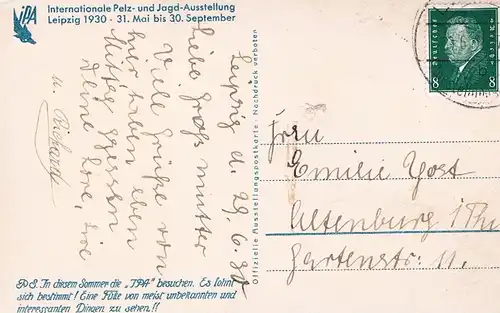 IPA
Internationale Pelz- und Jagd-Ausstellung
Leipzig 1930 · 31. Mai bis 30. September
Leipzig d. 29.6.30
Liebe Großmutter
Viele Grüße von
hier haben eben
Mittag gegessen
Deine Lore,
u. Richard
PS. In diesem Sommer die „IPA" besuchen. Es lohnt
sich bestimmt! Eine Fülle von meist unbekannten und
interessanten Dingen zu sehen!!
Offizielle Ausstellungspostkarte · Nachdruck verboten
8 8
Frau
Emilie Yost
Altenburg i Thr
Gartenstr. 11.